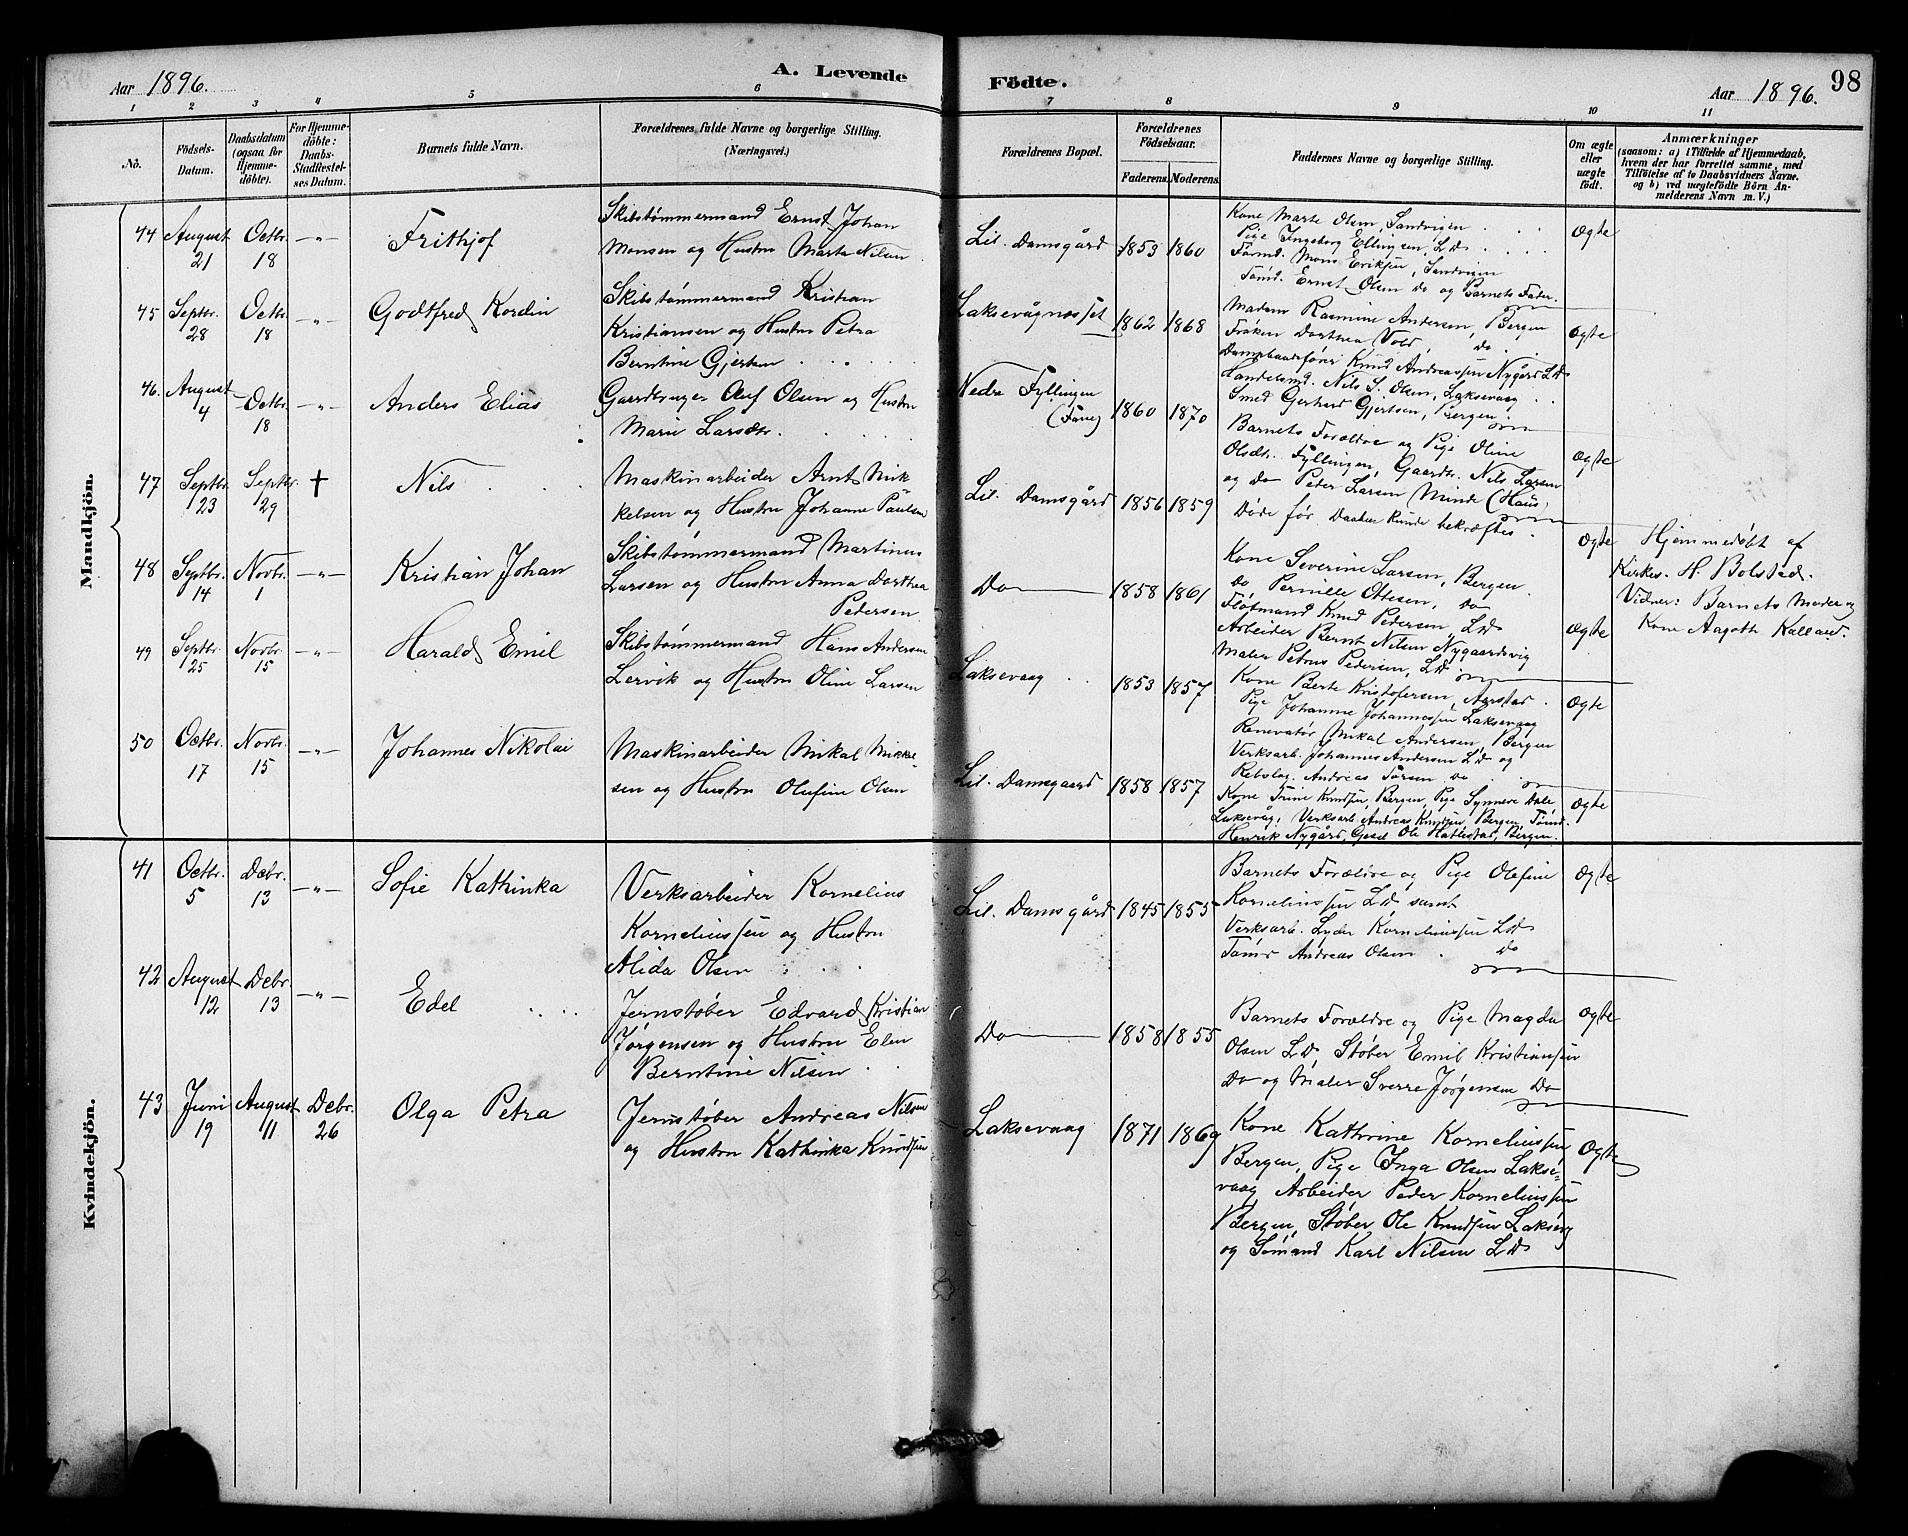 Aar 1896.
A. Levende
Födte.
Aar 1896.
98
1 2 3 4 5 6 7 8 9 10 11
No.
Födsels-
Datum.
Daabsdatum
(ogsaa for
Hjemme-
döbte).
For Hjemme-
döbte:
Daabs-
Stadfæstel-
ses Datum.
Barnets fulde Navn.
Forældrenes fulde Navne og borgerlige Stilling.
(Næringsvei.)
Forældrenes Bopæl.
Forældrenes
Födselsaar.
Faderens. Moderens.
Faddernes Navne og borgerlige Stilling.
Om ægte
eller
uægte
födt.
Anmærkninger
(saasom: a) i Tilfælde af Hjemmedaab,
hvem der har forrettet samme, med
Tilföielse af to Daabsvidners Navne.
og b) ved uægtefödte Börn An-
melderens Navn m. V.)
Mandkjön.
44 August 21 Octbr. 18 -"- Frithjof
Skibstømmermand Ernst Johan
Monsen og Hustru Marta Nilsen
Lil. Damsgård 1853 1860
Kone Marte Olsen, Sandvigen
Pige Ingeborg Ellingsen, Ld
Tømd. Mons Eriksen, Sandvigen
Tømd. Ernst Olsen do og Barnets Fader.
Ægte
45 Septbr. 28 Octbr. 18 -"- Godtfred Kordin
Skibstømmermand Kristian
Kristiansen og Hustru Petra
Berntine Gjertsen
Laksevågnesset 1862 1868
Madam Rasmine Andersen, Bergen
Frøken Dorthea Vold, do
Dampbaadsfører Knud Andreassen Nygård Ld
Handelsmd. Nils S. Olsen, Laksevaag
Smed Gerhard Gjertsen, Bergen
Ægte
46. August 4 Octbr. 18 -"- Anders Elias
Gaardbruger Oluf Olsen og Hustru
Marie Larsdtr.
Nedre Fyllingen
(Fane) 1860 1870
Barnets Forældre og Pige Oline
Olsdtr. Fyllingen, Gaardbr. Nils Larsen
og do Peder Larsen Minde (Haus)
Ægte
47 Septbr. 23 Septbr. 29 † Nils
Maskinarbeider Arnt Mik-
kelsen og Hustru Johanne Paulsen
Lil. Damsgård 1856 1859
Døde før Daaben kunde bekræftes.
Ægte
Hjemmedøbt af
Kirkes. H. Bolstad.
Vidner: Barnets Moder og
Kone Aagoth Kalland.
48 Septbr. 14 Novbr. 1 -"- Kristian Johan
Skibstømmermand Martinus
Larsen og Hustru Anna Dorthea
Pedersen
Do 1858 1861
Kone Severine Larsen, Bergen
do Pernille Ottesen, do
Fløtmand Knud Pedersen, Ld
Arbeider Bernt Nilsen Nygaardsvig
Maler Petrus Pedersen, Ld
Ægte
49 Septbr. 25 Novbr. 15 -"- Harald Emil
Skibstømmermand Hans Andersen
Lervik og Hustru Oline Larsen
Laksevaag 1853 1857
Kone Berte Kristofersen, Aarstad
Pige Johanne Johannessen Laksevaag
Renovatør Mikal Andersen, Bergen
Verksarb. Johannes Andersen Ld og
Rebslag. Andreas Larsen do
Ægte
50 Octbr. 17 Novbr. 15 -"- Johannes Nikolai
Maskinarbeider Mikal Mikkel-
sen og Hustru Olufine Olsen
Lil. Damsgaard 1858 1857
Kone Trine Knudsen, Bergen, Pige Synneve Dale
Laksevåg, Verksarb. Andreas Knudsen Bergen Tømd.
Henrik Nygård, Gesel Ole Hatlestad, Bergen.
Ægte
Kvindekjön.
41 Octbr. 5 Decbr. 13 -"- Sofie Kathinka
Verksarbeider Kornelius
Korneliussen og Hustru
Alida Olsen
Lil. Damsgård 1845 1855
Barnets Forældre og Pige Olefine
Korneliussen Ld samt
Verksarb. Lyder Korneliussen Ld
Tømr Andreas Olsen do
Ægte
42 August 12 Debr. 13 -"- Edel
Jernstøber Edvard Kristian
Jørgensen og Hustru Elen
Berntine Nilsen
Do 1858 1855
Barnets Forældre og Pige Magda
Olsen Ld, Støber Emil Kristiansen
Do og Maler Sverre Jørgensen Do
Ægte
43 Juni 19 August 11 Debr. 26 Olga Petra
Jernstøber Andreas Nilsen
og Hustru Kathinka Knudsen
Laksevaag 1871 1869
Kone Kathrine Korneliussen
Bergen, Pige Inga Olsen Lakse-
vaag, Arbeider Peder Korneliussen
Bergen, Støber Ole Knudsen Laksevg
og Sømand Karl Nilsen Ld
Ægte